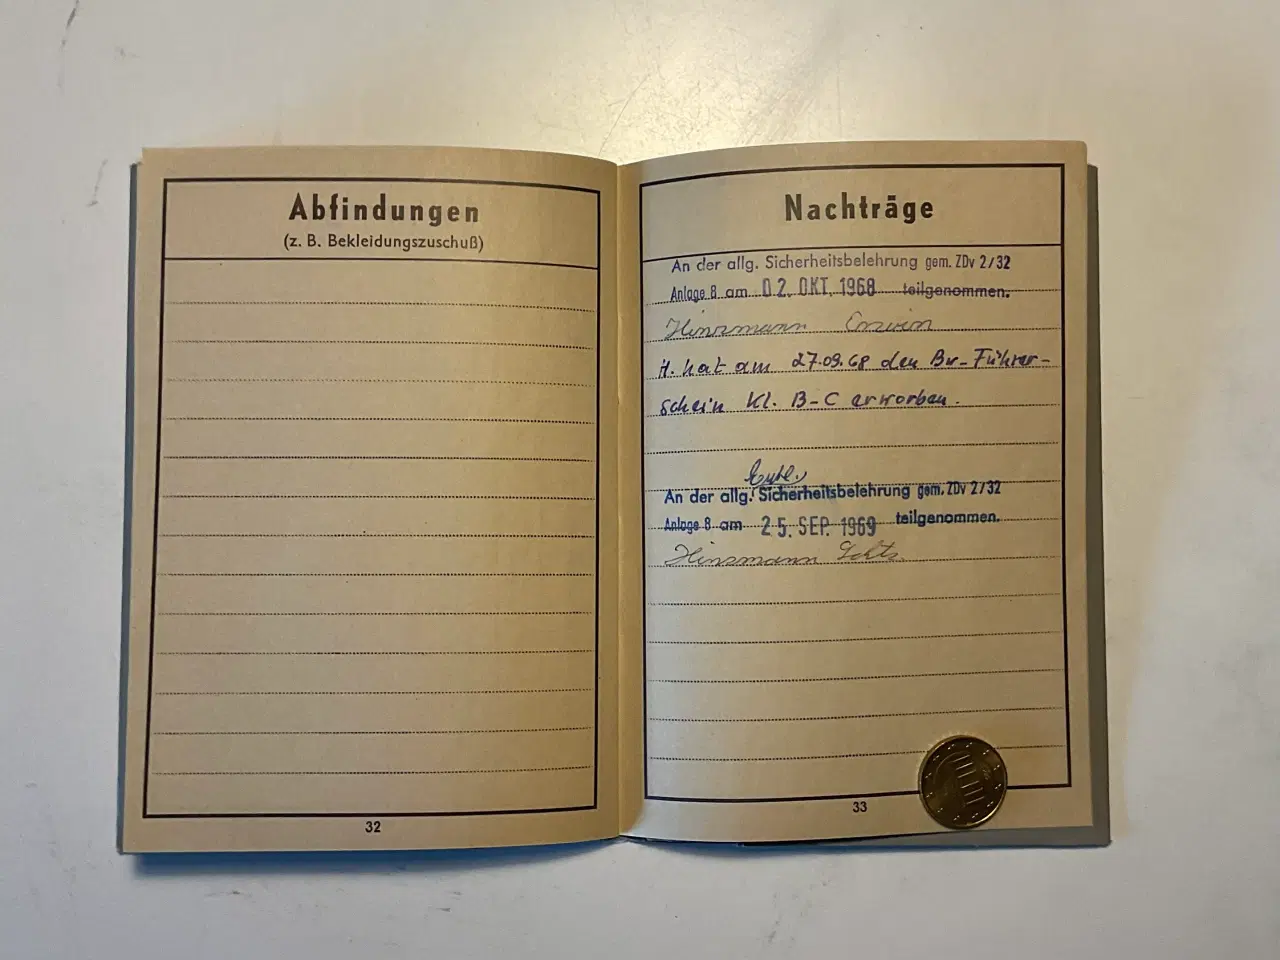 Abfindungen
(z. B. Bekleidungszuschuß)
32
Nachträge
An der allg. Sicherheitsbelehrung gem. ZDv 2/32
Anlage 8 am 02. OKT. 1968 teilgenommen.
Hinzmann
H. hat am 27.09.68 den Bw-Führer-
schein Kl. B-C erworben.
An der allg. Sicherheitsbelehrung gem. ZDv 2/32
Anlage 8 am 25. SEP. 1969 teilgenommen.
Hinzmann
33